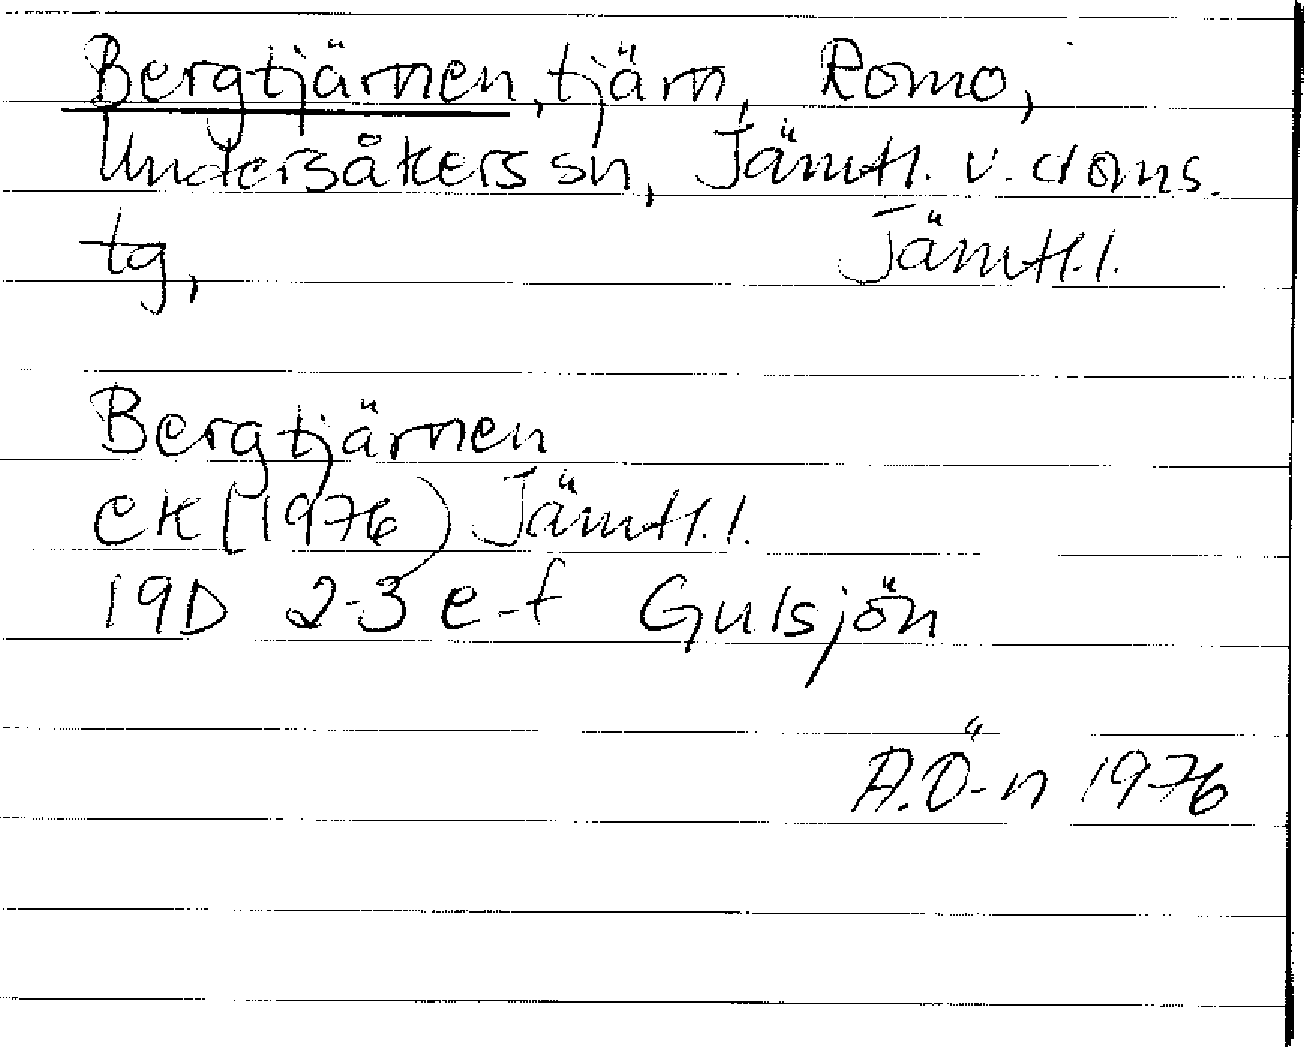 Bergtjärnen, tjärn, Romo,
Undersåkers sn, Jämtl. v. doms.
tg, Jämtl. l.
Bergtjärnen
EK (1976) Jämtl. l.
19D 2-3 e-f Gulsjön
A.Ö-n 1976